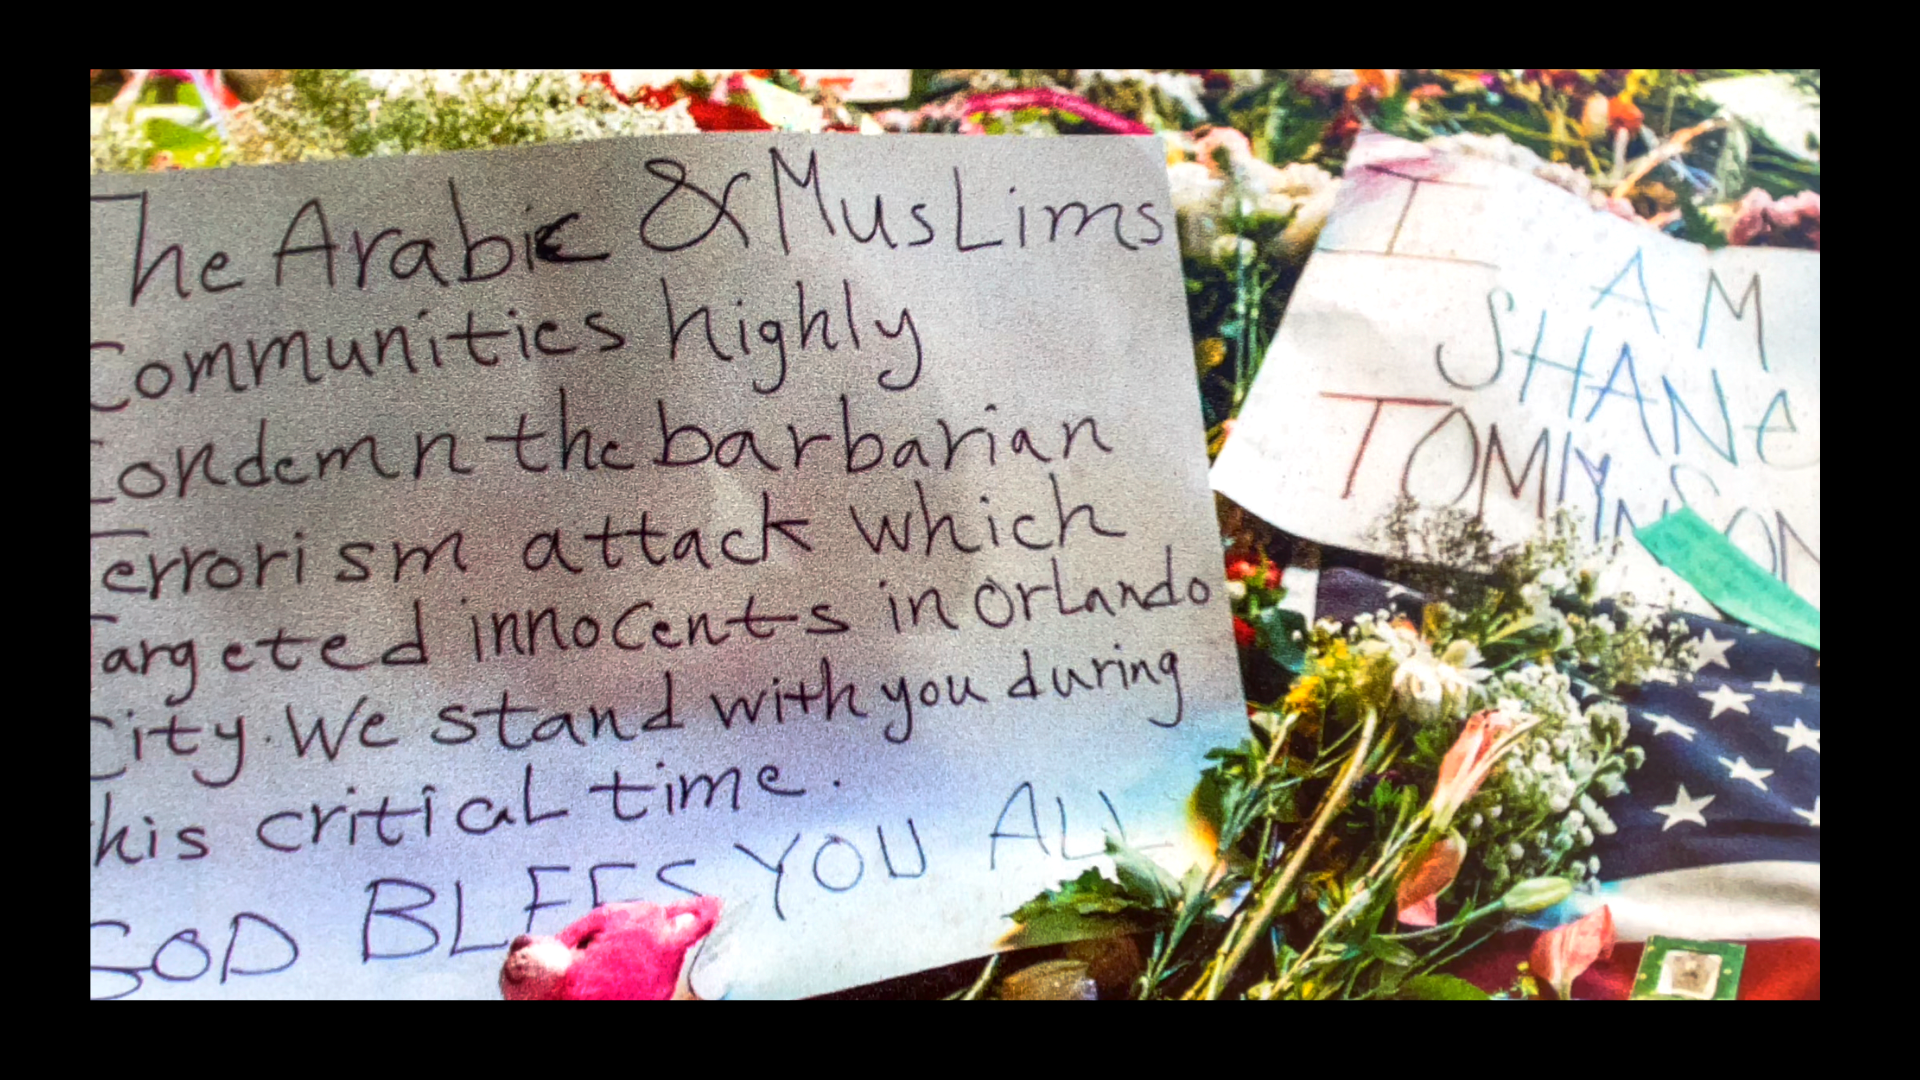 The Arabic & MusLims
Communities highly
Condemn the barbarian
Terrorism attack which
Targeted innocents in Orlando
City. We stand with you during
this critical time.
GOD BLEES YOU ALL
I AM
SHANE
TOMLYNSON